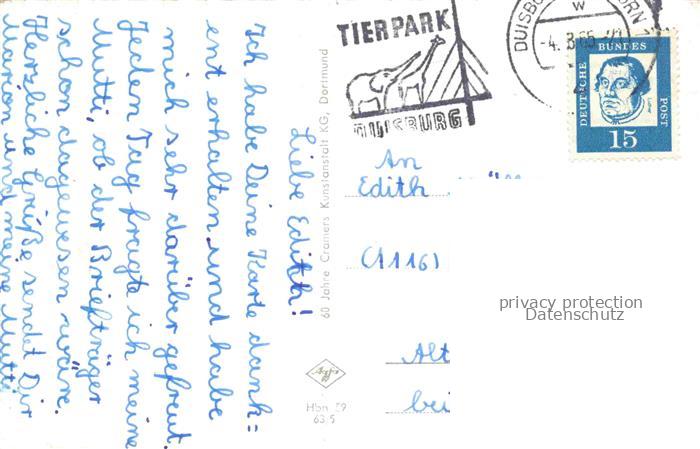 Liebe Edith!
Ich habe Deine Karte dank=
ent erhalten und habe
mich sehr darüber gefreut.
Jeden Tag fragte ich meine
Mutti, ob der Briefträger
schon dagewesen wäre.
Herzliche Grüße sendet Dir
Marion und meine Mutti
60 Jahre Cramers Kunstanstalt KG, Dortmund
TIERPARK
DUISBURG
DUISBU
ORN
w
-4. 8. 65
DEUTSCHE
BUNDES
POST
15
An
Edith
(1116)
Alt
bei
privacy protection
Datenschutz
Hbn 59
63/5